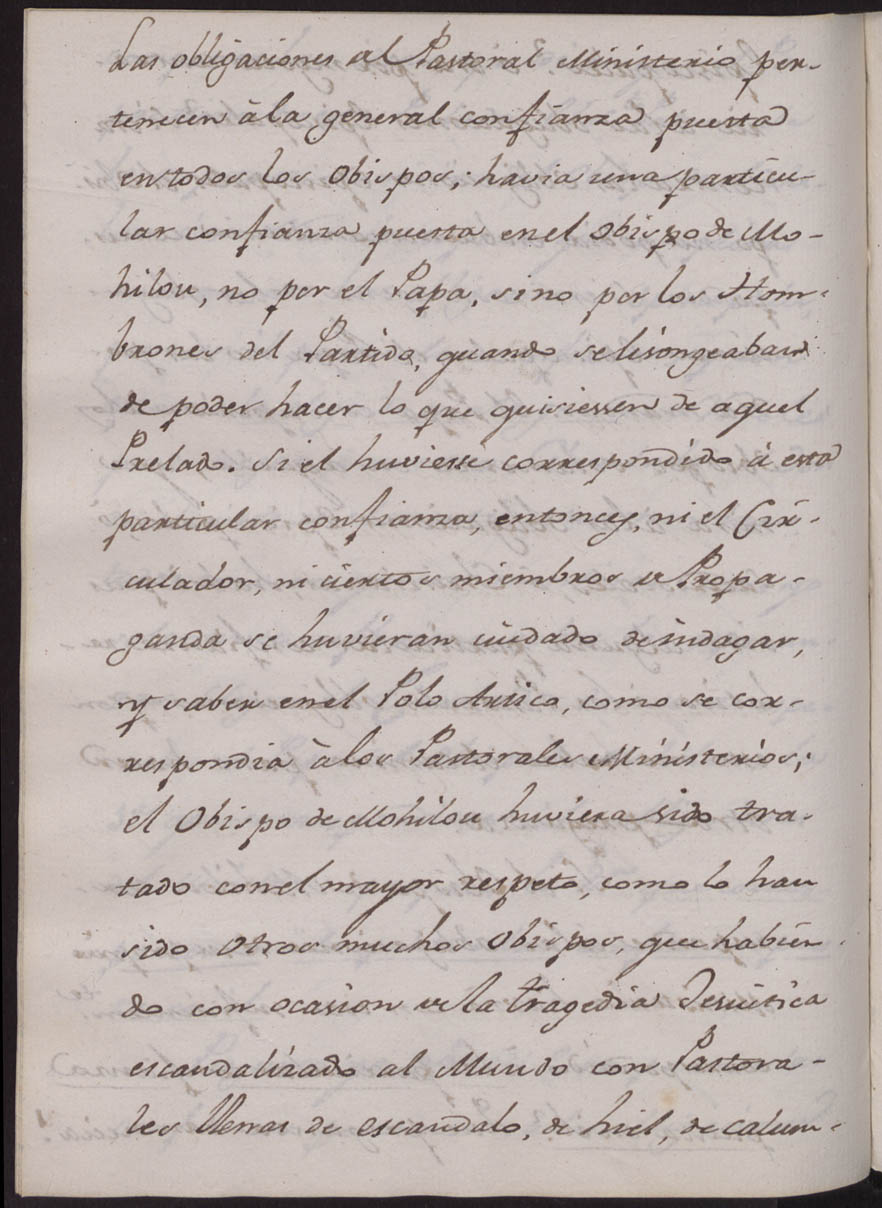 Las obligaciones al Pastoral Ministerio per-
tenecen à la general confianza puesta
en todos los Obispos; havia una particu-
lar confianza puesta en el Obispo de Mo-
hilou, no por el Papa, sino por los Hom-
brones del Partido, quando se lisongeaban
de poder hacer lo que quisiessen de aquel
Prelado. Si el huviesse correspondido á esta
particular confianza, entonces, ni el Cir-
culador, ni ciertos miembros de Propa-
ganda se huvieran cuidado de indagar,
y saber en el Polo Artico, como se cor-
respondia à los Pastorales Ministerios;
el Obispo de Mohilou huviera sido tra-
tado con el mayor respeto, como lo han
sido otros muchos Obispos, que habien-
do con ocasion de la tragedia Jesuitica
escandalizado al Mundo con Pastora-
les llenas de escandalo, de hiel, de calum-